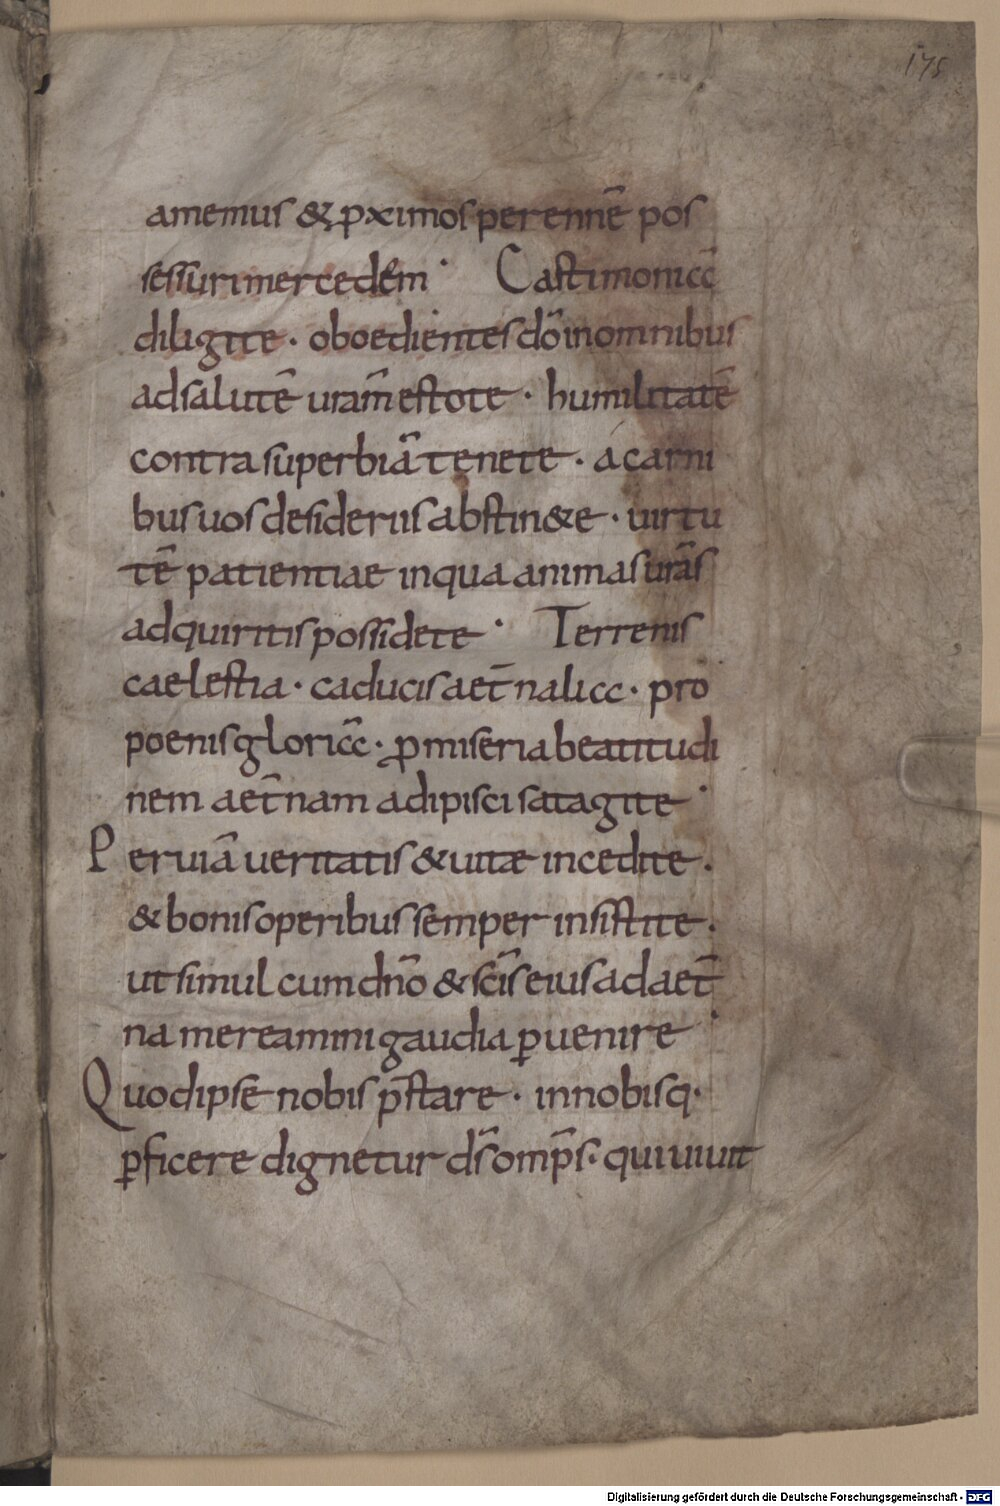 175
amemus & p̱ximos perennē pos
sessuri mercedem · Castimoniā
diligite · oboedientes dō in omnibus
ad salutē urām estote · humilitatē
contra superbiā tenete · a carni
bus uos desideriis abstin&e · uirtu
tē patientiae in qua animas urās
adquiritis possidete · Terrenis
caelestia · caducis aet̄nalia · pro
poenis gloriā · p̱ miseria beatitudi
nem aet̄nam adipisci satagite ·
Per uiā ueritatis & uitæ incedite ·
& bonis operibus semper insistite ·
ut simul cum dn̄o & sc̄is eius ad aet̄
na mereamini gaudia p̱uenire ·
Quod ipse nobis p̄stare · in nobisq·
p̱ficere dignetur ds̄ omp̄s · qui uiuit
Digitalisierung gefördert durch die Deutsche Forschungsgemeinschaft - DFG